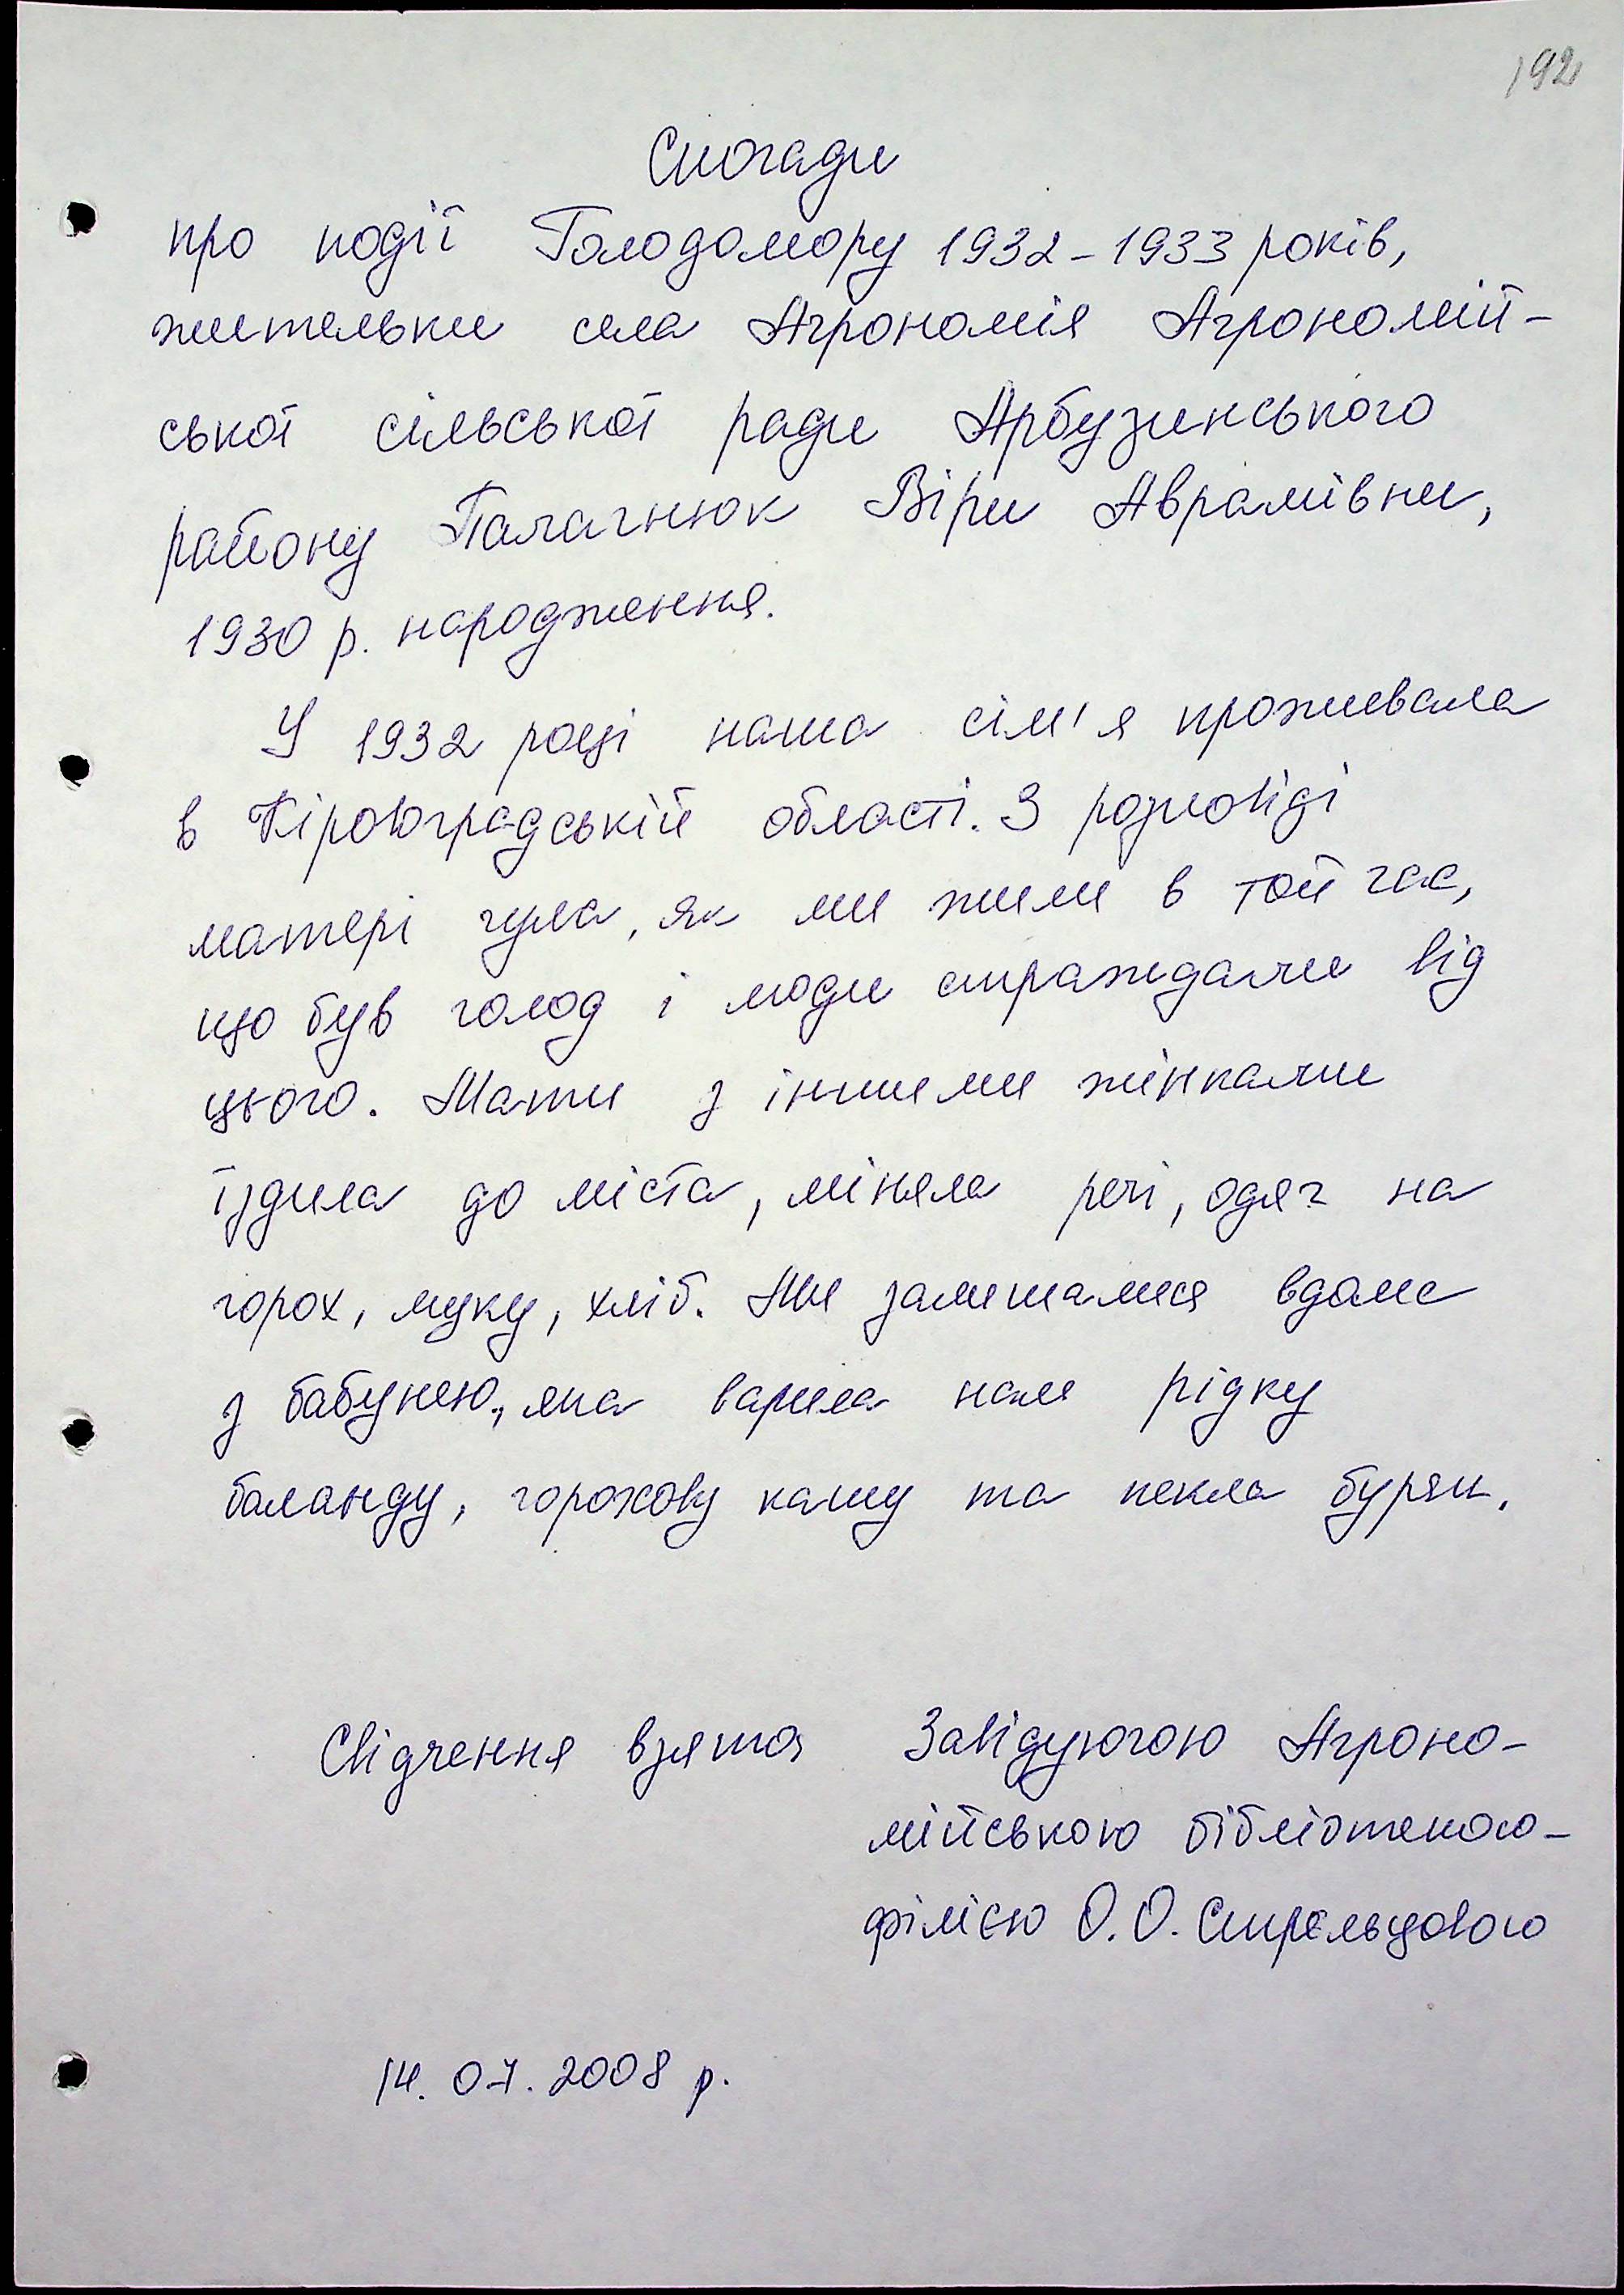 192
Спогади
про події Голодомору 1932-1933 років,
жительки села Агрономія Агрономій-
ської сільської ради Арбузинського
району Палагнюк Віри Аврамівни,
1930 р. народження.
У 1932 році наша сім'я проживала
в Кіровоградській області. З розповіді
матері чула, як ми жили в той час,
що був голод і люди страждали від
цього. Мати з іншими жінками
їздила до міста, міняла речі, одяг на
горох, муку, хліб. Ми залишалися вдома
з бабунею, яка варила нам рідку
баланду, горохову кашу та пекла буряк.
Свідчення взято Завідуючою Агроно-
мійською бібліотекою-
філією О.О. Стрельцовою
14. 07. 2008 р.